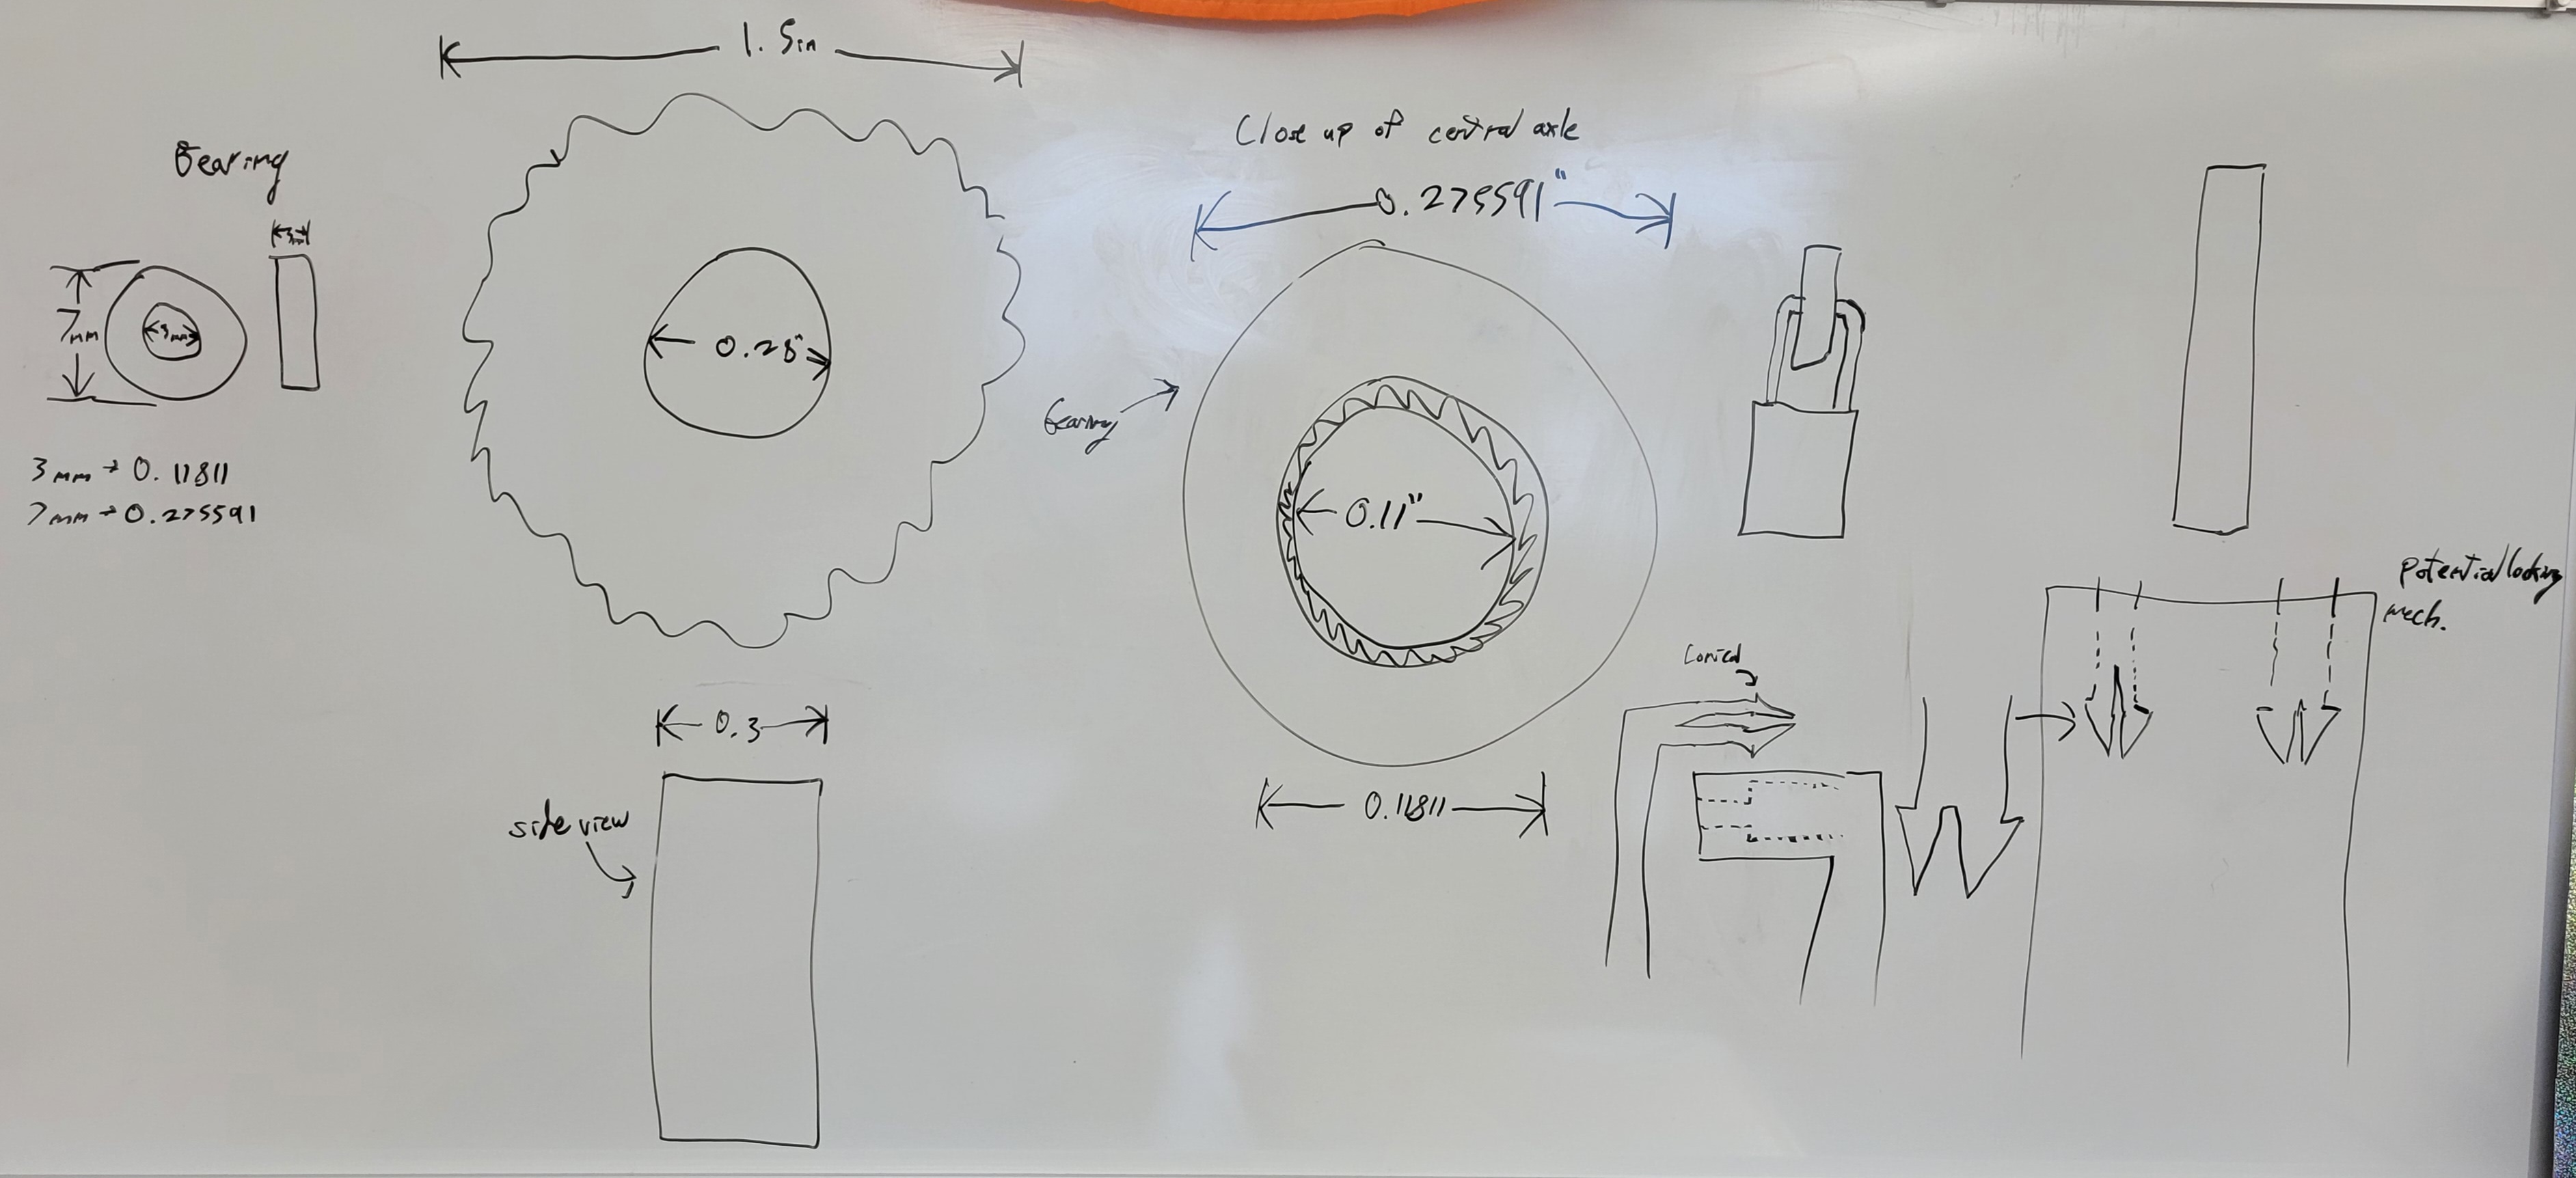 1.5in
Bearing
3mm
7mm
3mm
3mm → 0.11811
7mm → 0.275591
0.28"
0.3
side view
Close up of central axle
0.275591"
Bearing
0.11"
0.11811
Conical
potential locking
mech.